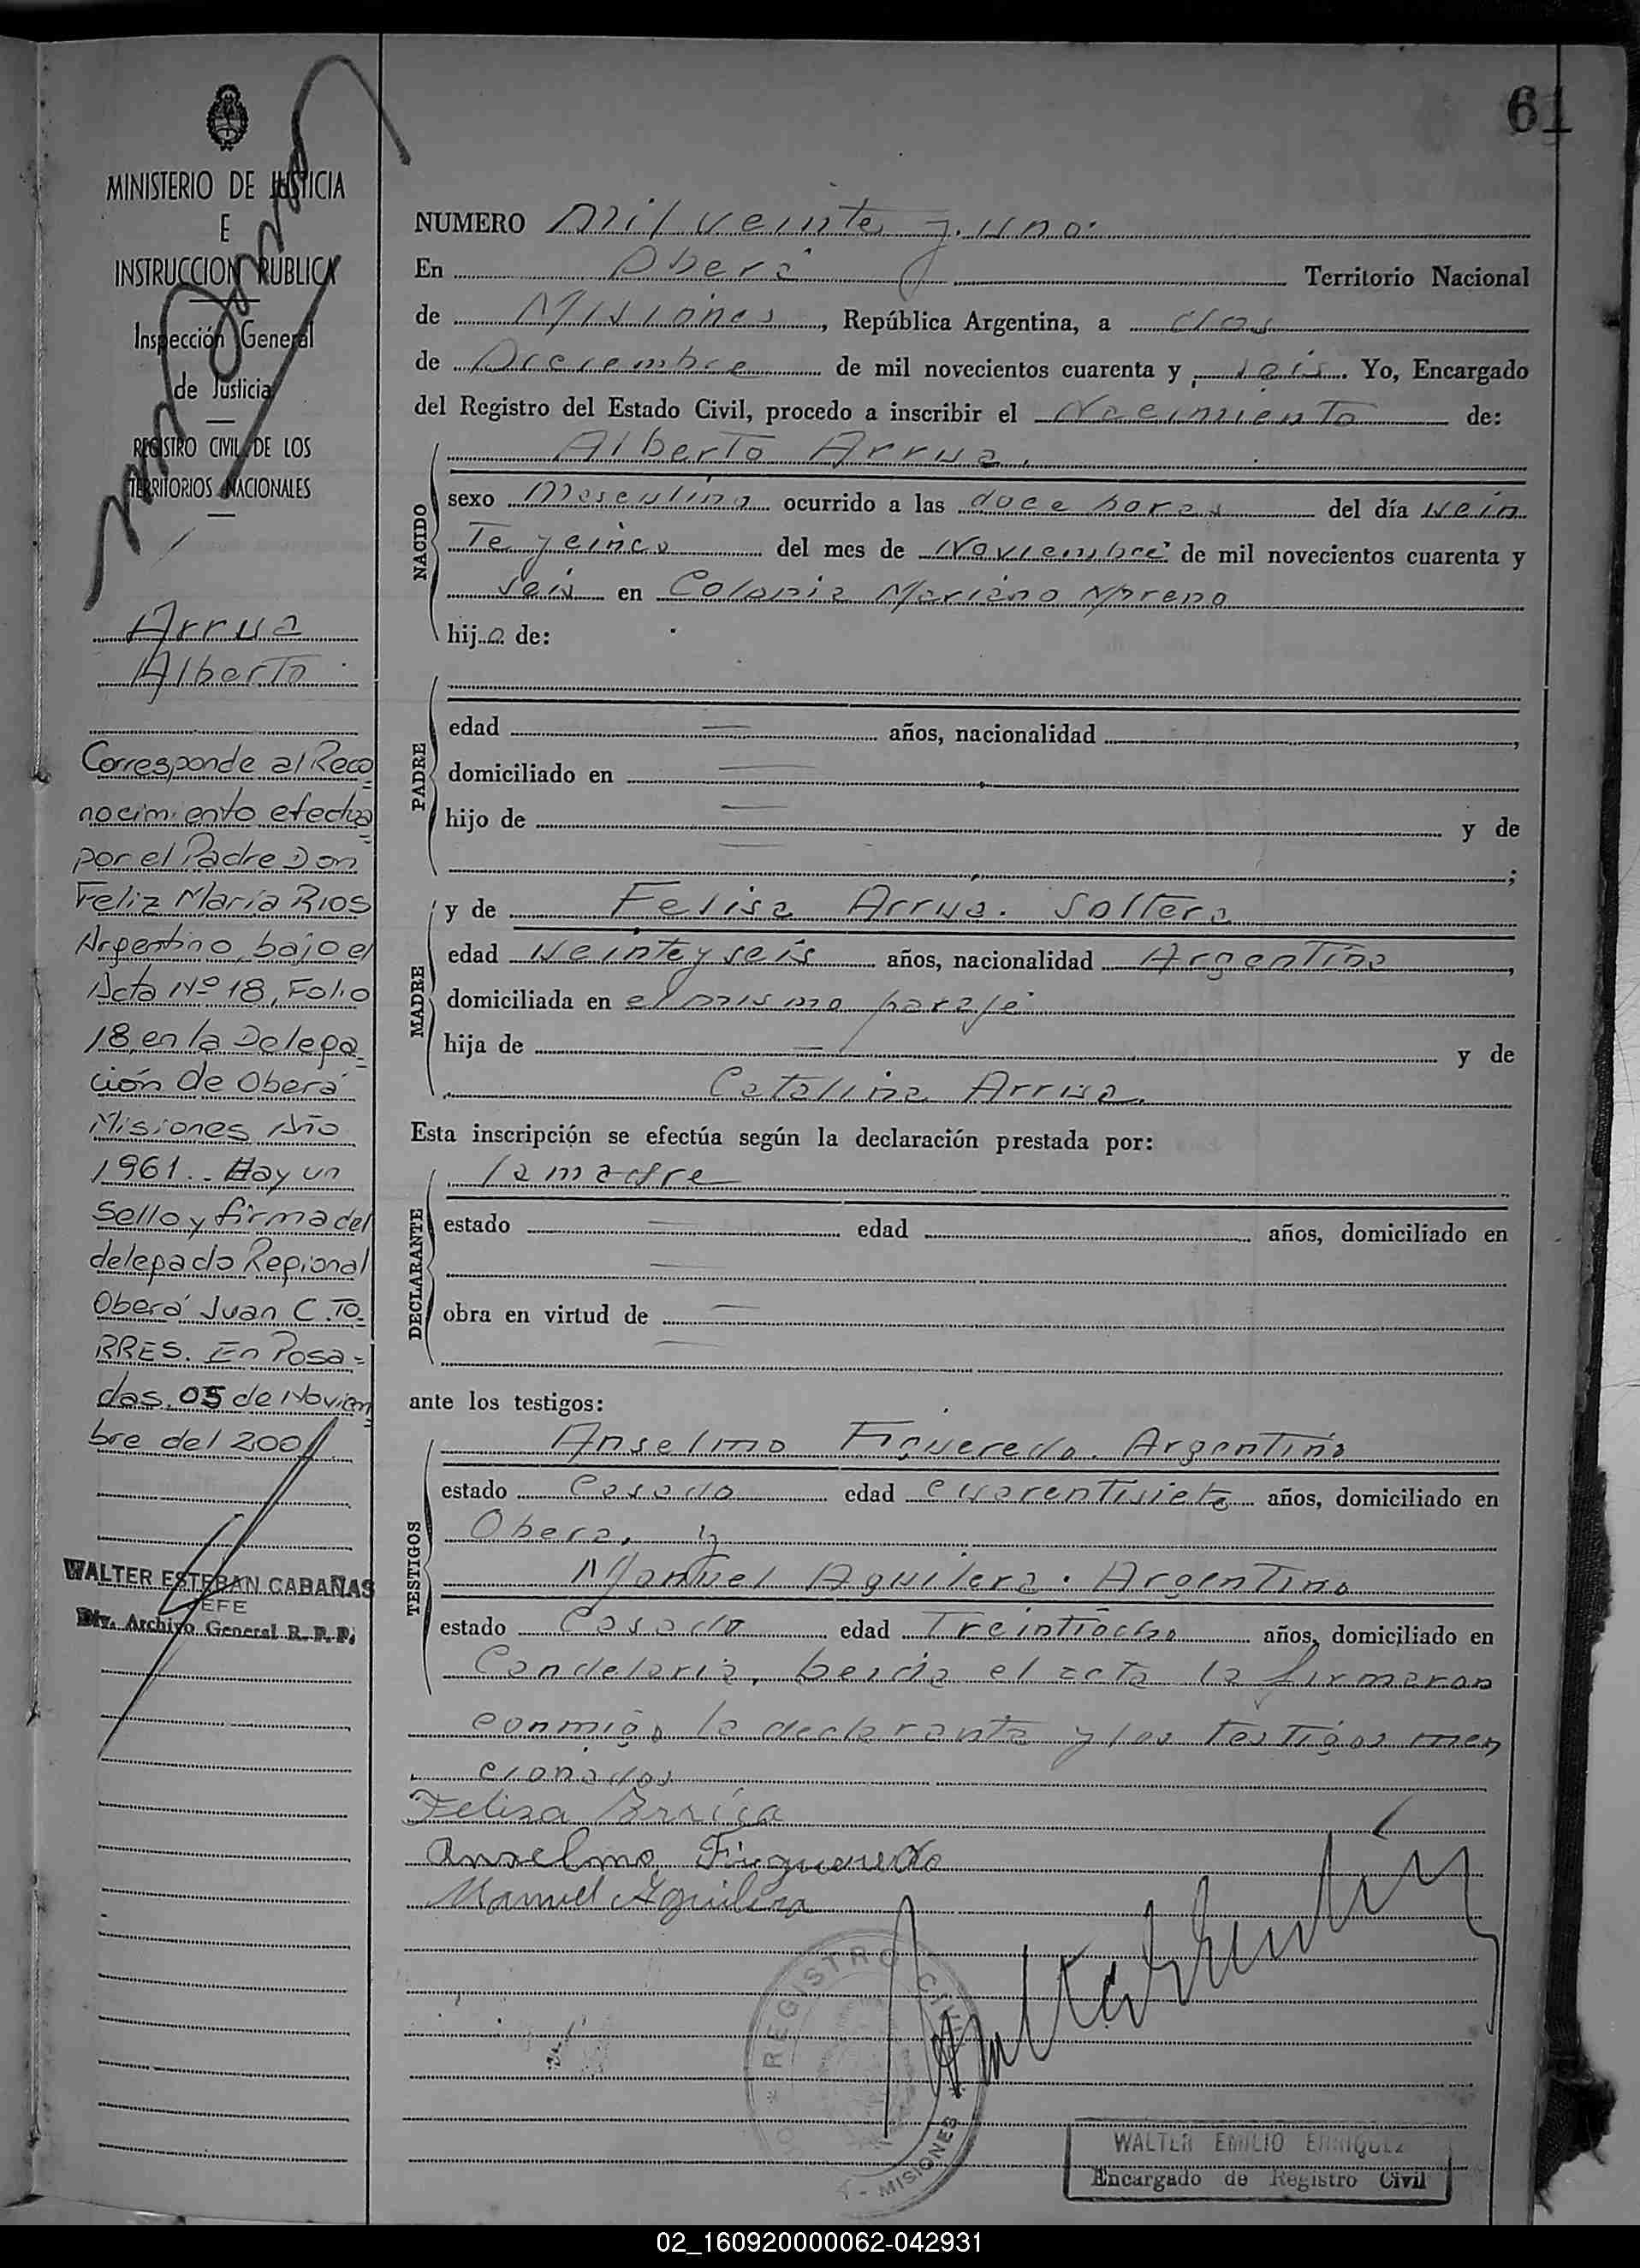 61
MINISTERIO DE JUSTICIA
E
INSTRUCCION PUBLICA
Inspección General
de Justicia
REGISTRO CIVIL DE LOS
TERRITORIOS NACIONALES
Arrua
Alberto
Corresponde al Reco
nocimiento efectua
por el Padre Don
Feliz María RIOS
Argentino, bajo el
Acta Nº 18, Folio
18 en la Delega
ción de Oberá
Misiones Año
1961.. Hay un
Sello y firma del
delegado Regional
Oberá Juan C. TO
RRES. En Posa=
das. 05 de Noviem
bre del 200
WALTER ESTEBAN CABAÑAS
JEFE
Div. Archivo General R. P. P.
NUMERO mil veinte y uno.
En Oberá Territorio Nacional
de Misiones, República Argentina, a dos
de Diciembre de mil novecientos cuarenta y seis. Yo, Encargado
del Registro del Estado Civil, procedo a inscribir el Nacimiento de:
NACIDO
Alberto Arrua.
sexo Masculino ocurrido a las doce horas del día vein
te y cinco del mes de Noviembre de mil novecientos cuarenta y
seis en Colonia Mariano Moreno
hijo de:
PADRE
edad años, nacionalidad ,
domiciliado en
hijo de y de
;
MADRE
y de Felisa Arrua. Soltera
edad veinte y seis años, nacionalidad Argentina,
domiciliada en el mismo paraje
hija de y de
Catalina Arrua.
Esta inscripción se efectúa según la declaración prestada por:
DECLARANTE
la madre
estado edad años, domiciliado en
obra en virtud de
ante los testigos:
TESTIGOS
Anselmo Figueredo. Argentino
estado Casado edad cuarentisiete años, domiciliado en
Obera, y
Manuel Aguilera. Argentino
estado Casado edad Treintiocho años, domiciliado en
Candelaria, leida el acta la firmaron
conmigo la declarante y los testigos men
cionados
Feliza
Anselmo Figueredo
Manuel Aguilera
REGISTRO CIVIL
MISIONES
WALTER EMILIO ENRIQUEZ
Encargado de Registro Civil
02_160920000062-042931